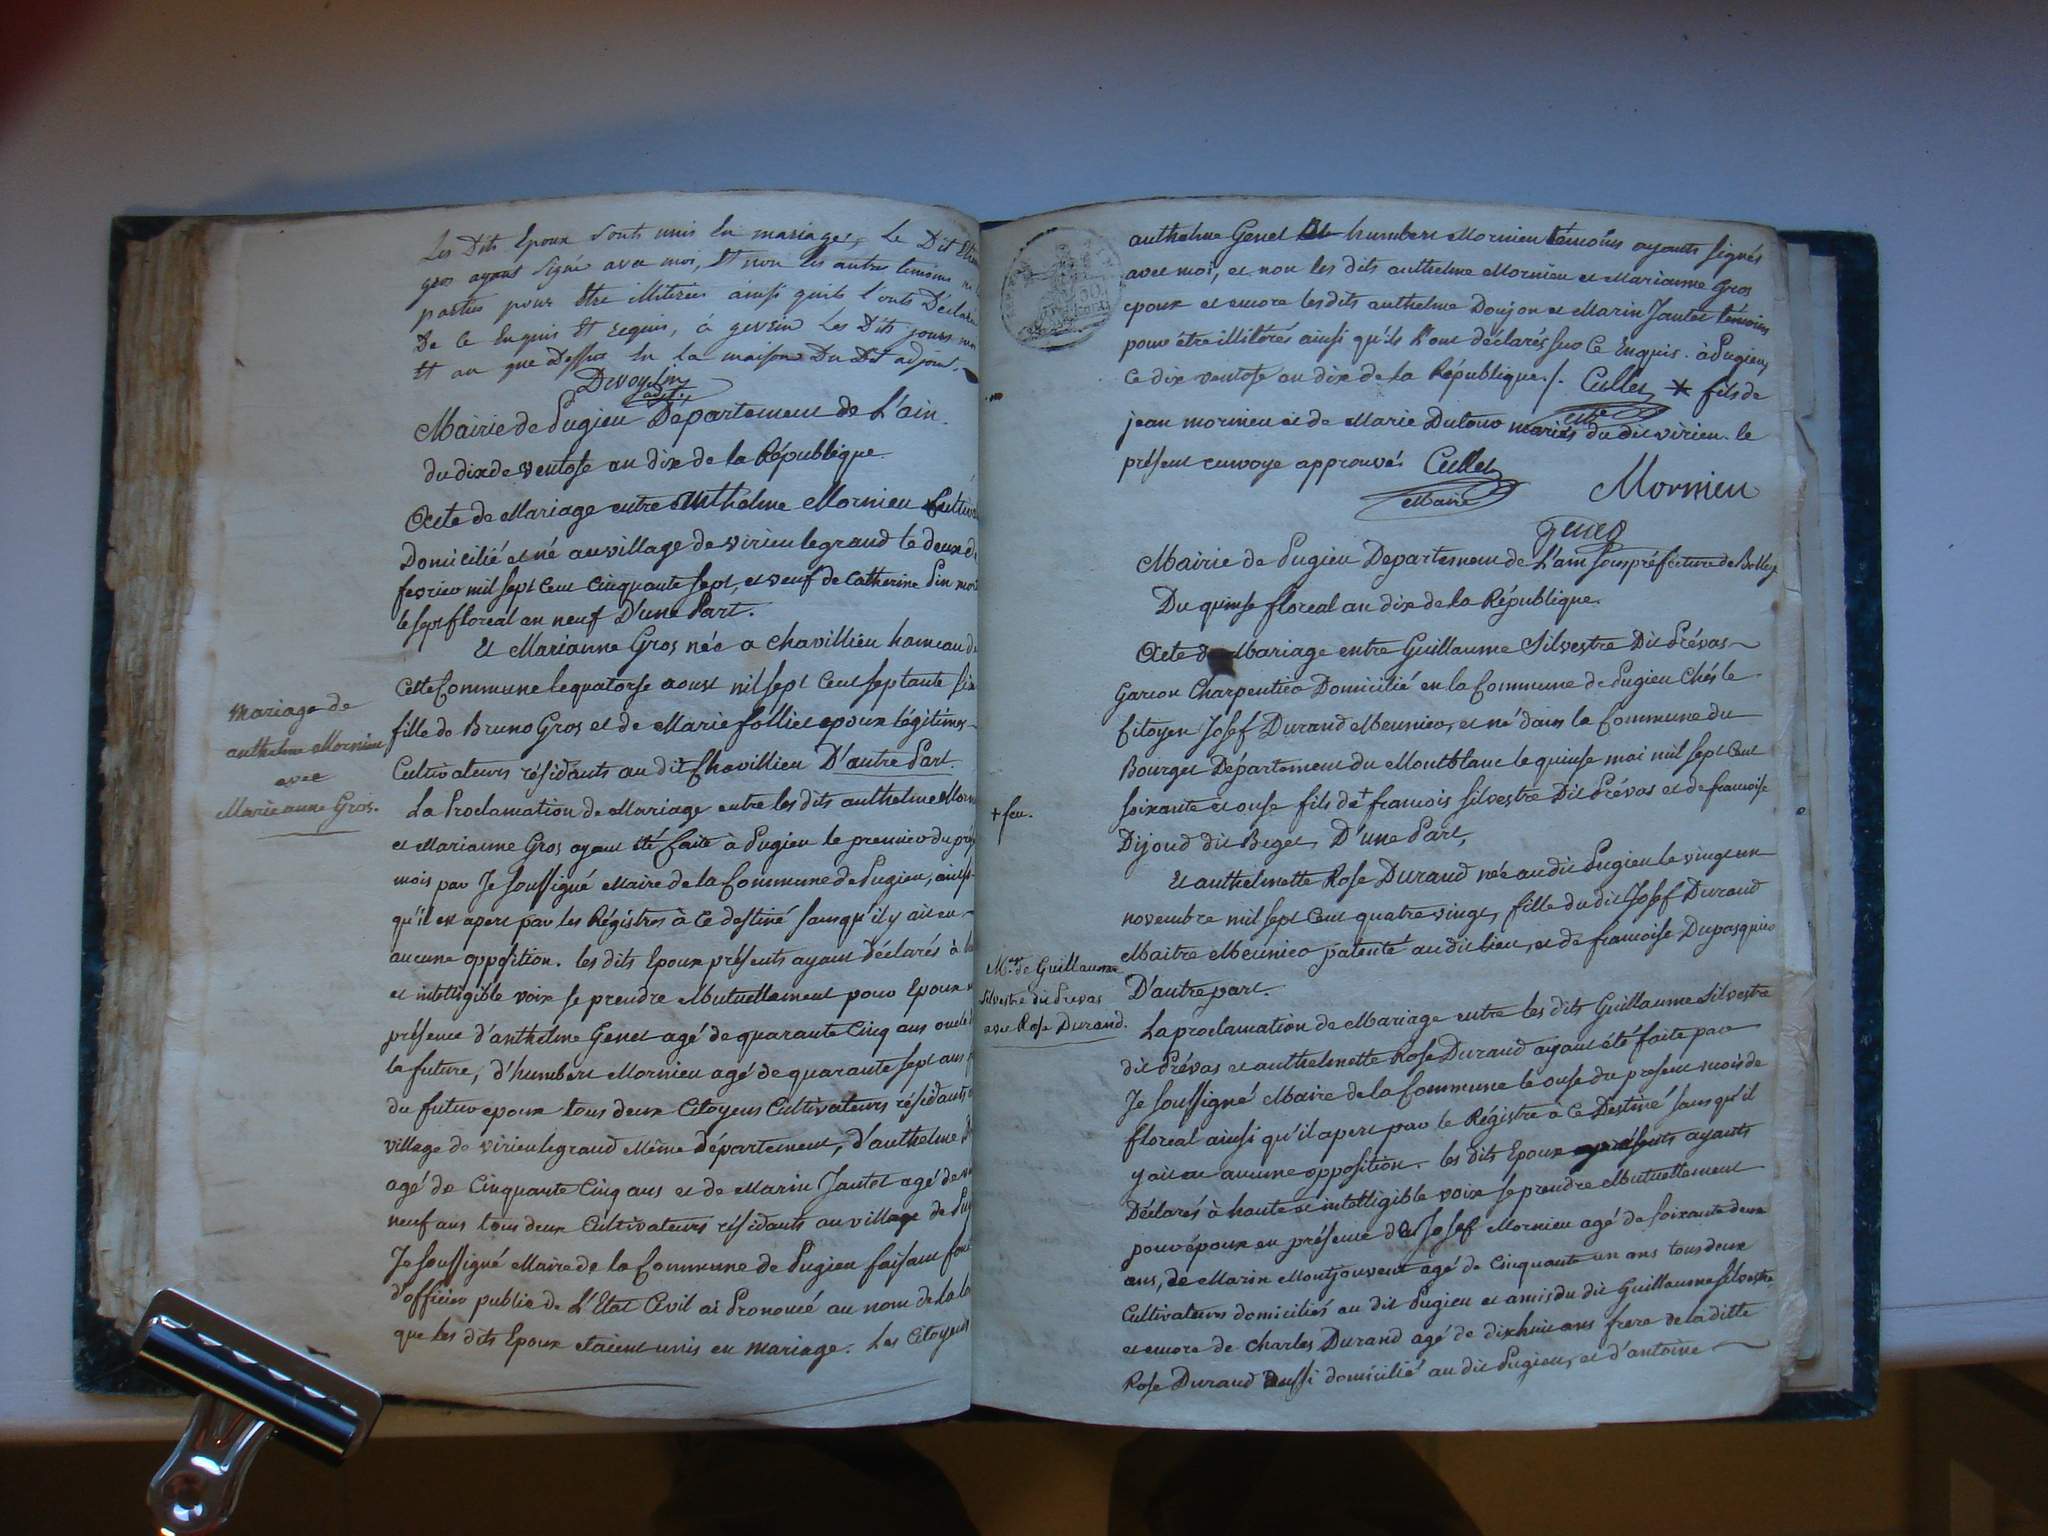 Les Dits Epoux sonts unis En mariage, Le Dit
gros ayant signé avec moi, Et non les autres temoins
parties pour Etre illiterées ainsi quils l'onts Déclaré
De ce Enquis Et requis, à gevrin Les Dits jours
Et an que Dessus En la maison Du Dit adjoint.
Devoylin
adjt.
Mairie de Pugieu Département de L'ain.
du dix de ventose an dix de la République
Acte de Mariage entre Anthelme Mornieu Cultiv
Domicilié et né au village de virieu legrand le deux de
fevrier mil sept Cent Cinquante sept, et veuf de Catherine Pin mort
le sept floréal an neuf D'une Part.
Et Marianne Gros née a Chavillieu hameau de
Cette Commune le quatorse aoust mil sept Cent septante six
fille de Bruno Gros et de Marie folliet epoux légitimes
Cultivateurs résidants au dit Chavillieu D'autre Part.
Mariage de
anthelme Mornieu
avec
Marie anne Gros.
La Proclamation de Mariage entre les dits anthelme Morn
et Marianne Gros ayant été faite à Pugieu le premier du prés
mois par Je soussigné Maire de la Commune de Pugieu, ainsi
qu'il en apert par les Régistres à ce destiné sans qu'il y ait eu
aucune opposition. les dits Epoux présents ayant Déclarés à
et intelligible voix se prendre Mutuellement pour Epoux
présence d'anthelme Genet agé de quarante Cinq ans oncle
la future, d'humbert Mornieu agé de quarante sept ans
du futur epoux tous deux Citoyens Cultivateurs résidants
village de virieu legrand Même département, d'anthelme
agé de Cinquante Cinq ans et de Marin Jantet agé de
neuf ans tous deux Cultivateurs résidants au village de Pug
Je soussigné Maire de la Commune de Pugieu faisant fon
d'officier public de L'Etat Civil ai Prononcé au nom de la loi
que les dits Epoux etaient unis en mariage. Les Citoyens
anthelme Genet Et humbert Mornieu témoins ayants signés
avec moi, et non les dits anthelme Mornieu et Marianne Gros
epoux et encore les dits anthelme Donjon et Marin Jantet témoins
pour être illitérés ainsi qu'ils l'ont déclarés sur Ce Enquis. à Pugieu,
Ce dix ventose an dix de la République./. Cullet * fils de
jean mornieu et de Marie Dutour mariés du dit virieu. le
présent renvoye approuvés Cullet
Maire
Mornieu
Genet
Mairie de Pugieu Departement de L'ain souspréfecture de Belley
Du quinse floreal an dix de la République.
Acte de Mariage entre Guillaume Silvestre Dit Prévas
Garcon Charpentier Domicilié en la Commune de Pugieu Chés le
Citoyen Josef Durand Meunier, et né dans la Commune du
Bourget Département du Montblanc le quinse mai mil sept Cent
soixante et onse fils de + francois silvestre Dit Prévas et de francoise
+ feu.
Dijoud dit Beget, D'une Part,
Et anthelmette Rose Durand née au dit Pugieu le vingt un
novembre mil sept Cent quatre vingt, fille du dit Josef Durand
Maitre Meunier patenté au dit lieu, et de francoise Dupasquier
D'autre part.
M.ge de Guillaume
silvestre dit Prevas
avec Rose Durand.
La proclamation de Mariage entre les dits Guillaume Silvestre
dit Prévas et anthelmette Rose Durand ayant été faite par
Je soussigné Maire de la Commune le onse du present mois de
floreal ainsi qu'il apert par le Régistre à Ce Destiné sans qu'il
y ait eu aucune opposition. les dits Epoux présents ayants
Déclarés à haute et intelligible voix se prendre Mutuellement
pour époux en présence de Josef Mornieu agé de soixante deux
ans, de Marin Montjouvent agé de Cinquante un ans tous deux
Cultivateurs domiciliés au dit Pugieu et amis du dit Guillaume silvestre
et encore de Charles Durand agé de dixhuit ans frere de la ditte
Rose Durand aussi domicilié au dit Pugieu, et d'antoine